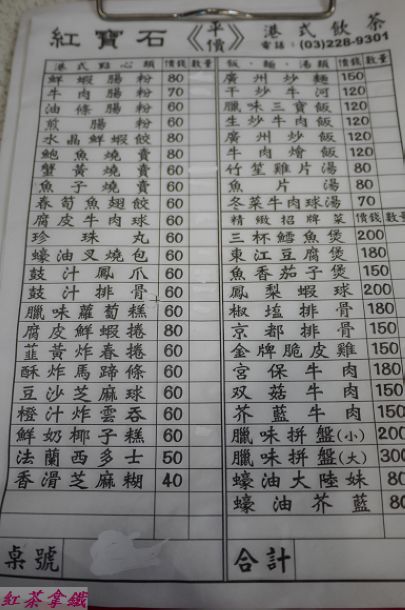 紅寶石《平價》港式飲茶
電話：(03)228-9301
港式點心類 價錢 數量
鮮蝦腸粉 80
牛肉腸粉 70
油條腸粉 60
煎腸粉 60
水晶鮮蝦餃 80
鮑魚燒賣 80
蟹黃燒賣 60
魚子燒賣 60
春筍魚翅餃 60
腐皮牛肉球 60
珍珠丸 60
蠔油叉燒包 60
鼓汁鳳爪 60
鼓汁排骨 60
臘味蘿蔔糕 60
腐皮鮮蝦捲 80
韮黃炸春捲 60
酥炸馬蹄條 60
豆沙芝麻球 60
橙汁炸雲吞 60
鮮奶椰子糕 60
法蘭西多士 50
香滑芝麻糊 40
桌號
飯、麵、湯類 價錢 數量
廣州炒麵 150
干炒牛河 120
臘味三寶飯 120
生炒牛肉飯 120
廣州炒飯 120
牛肉燴飯 120
竹笙雞片湯 80
魚片湯 80
冬菜牛肉球湯 70
精緻招牌菜 價錢 數量
三杯鱈魚煲 200
東江豆腐煲 180
魚香茄子煲 150
鳳梨蝦球 200
椒塩排骨 180
京都排骨 150
金牌脆皮雞 150
宮保牛肉 180
双菇牛肉 150
芥藍牛肉 150
臘味拼盤(小) 200
臘味拼盤(大) 300
蠔油大陸妹 80
蠔油芥藍 80
合計
紅茶拿鐵